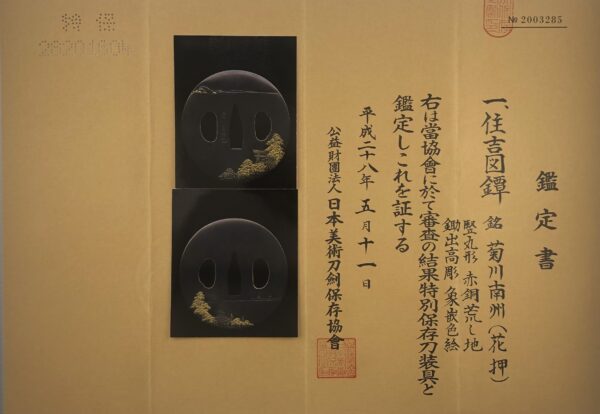 鑑定書
一、住吉図鐔 銘 菊川南州(花押)
竪丸形 赤銅荒し地
鋤出高彫 象嵌色絵
右は當協會に於て審査の結果特別保存刀装具と
鑑定しこれを証する
平成二十八年 五月十一日
公益財團法人 日本美術刀劍保存協會
№ 2003285
特保